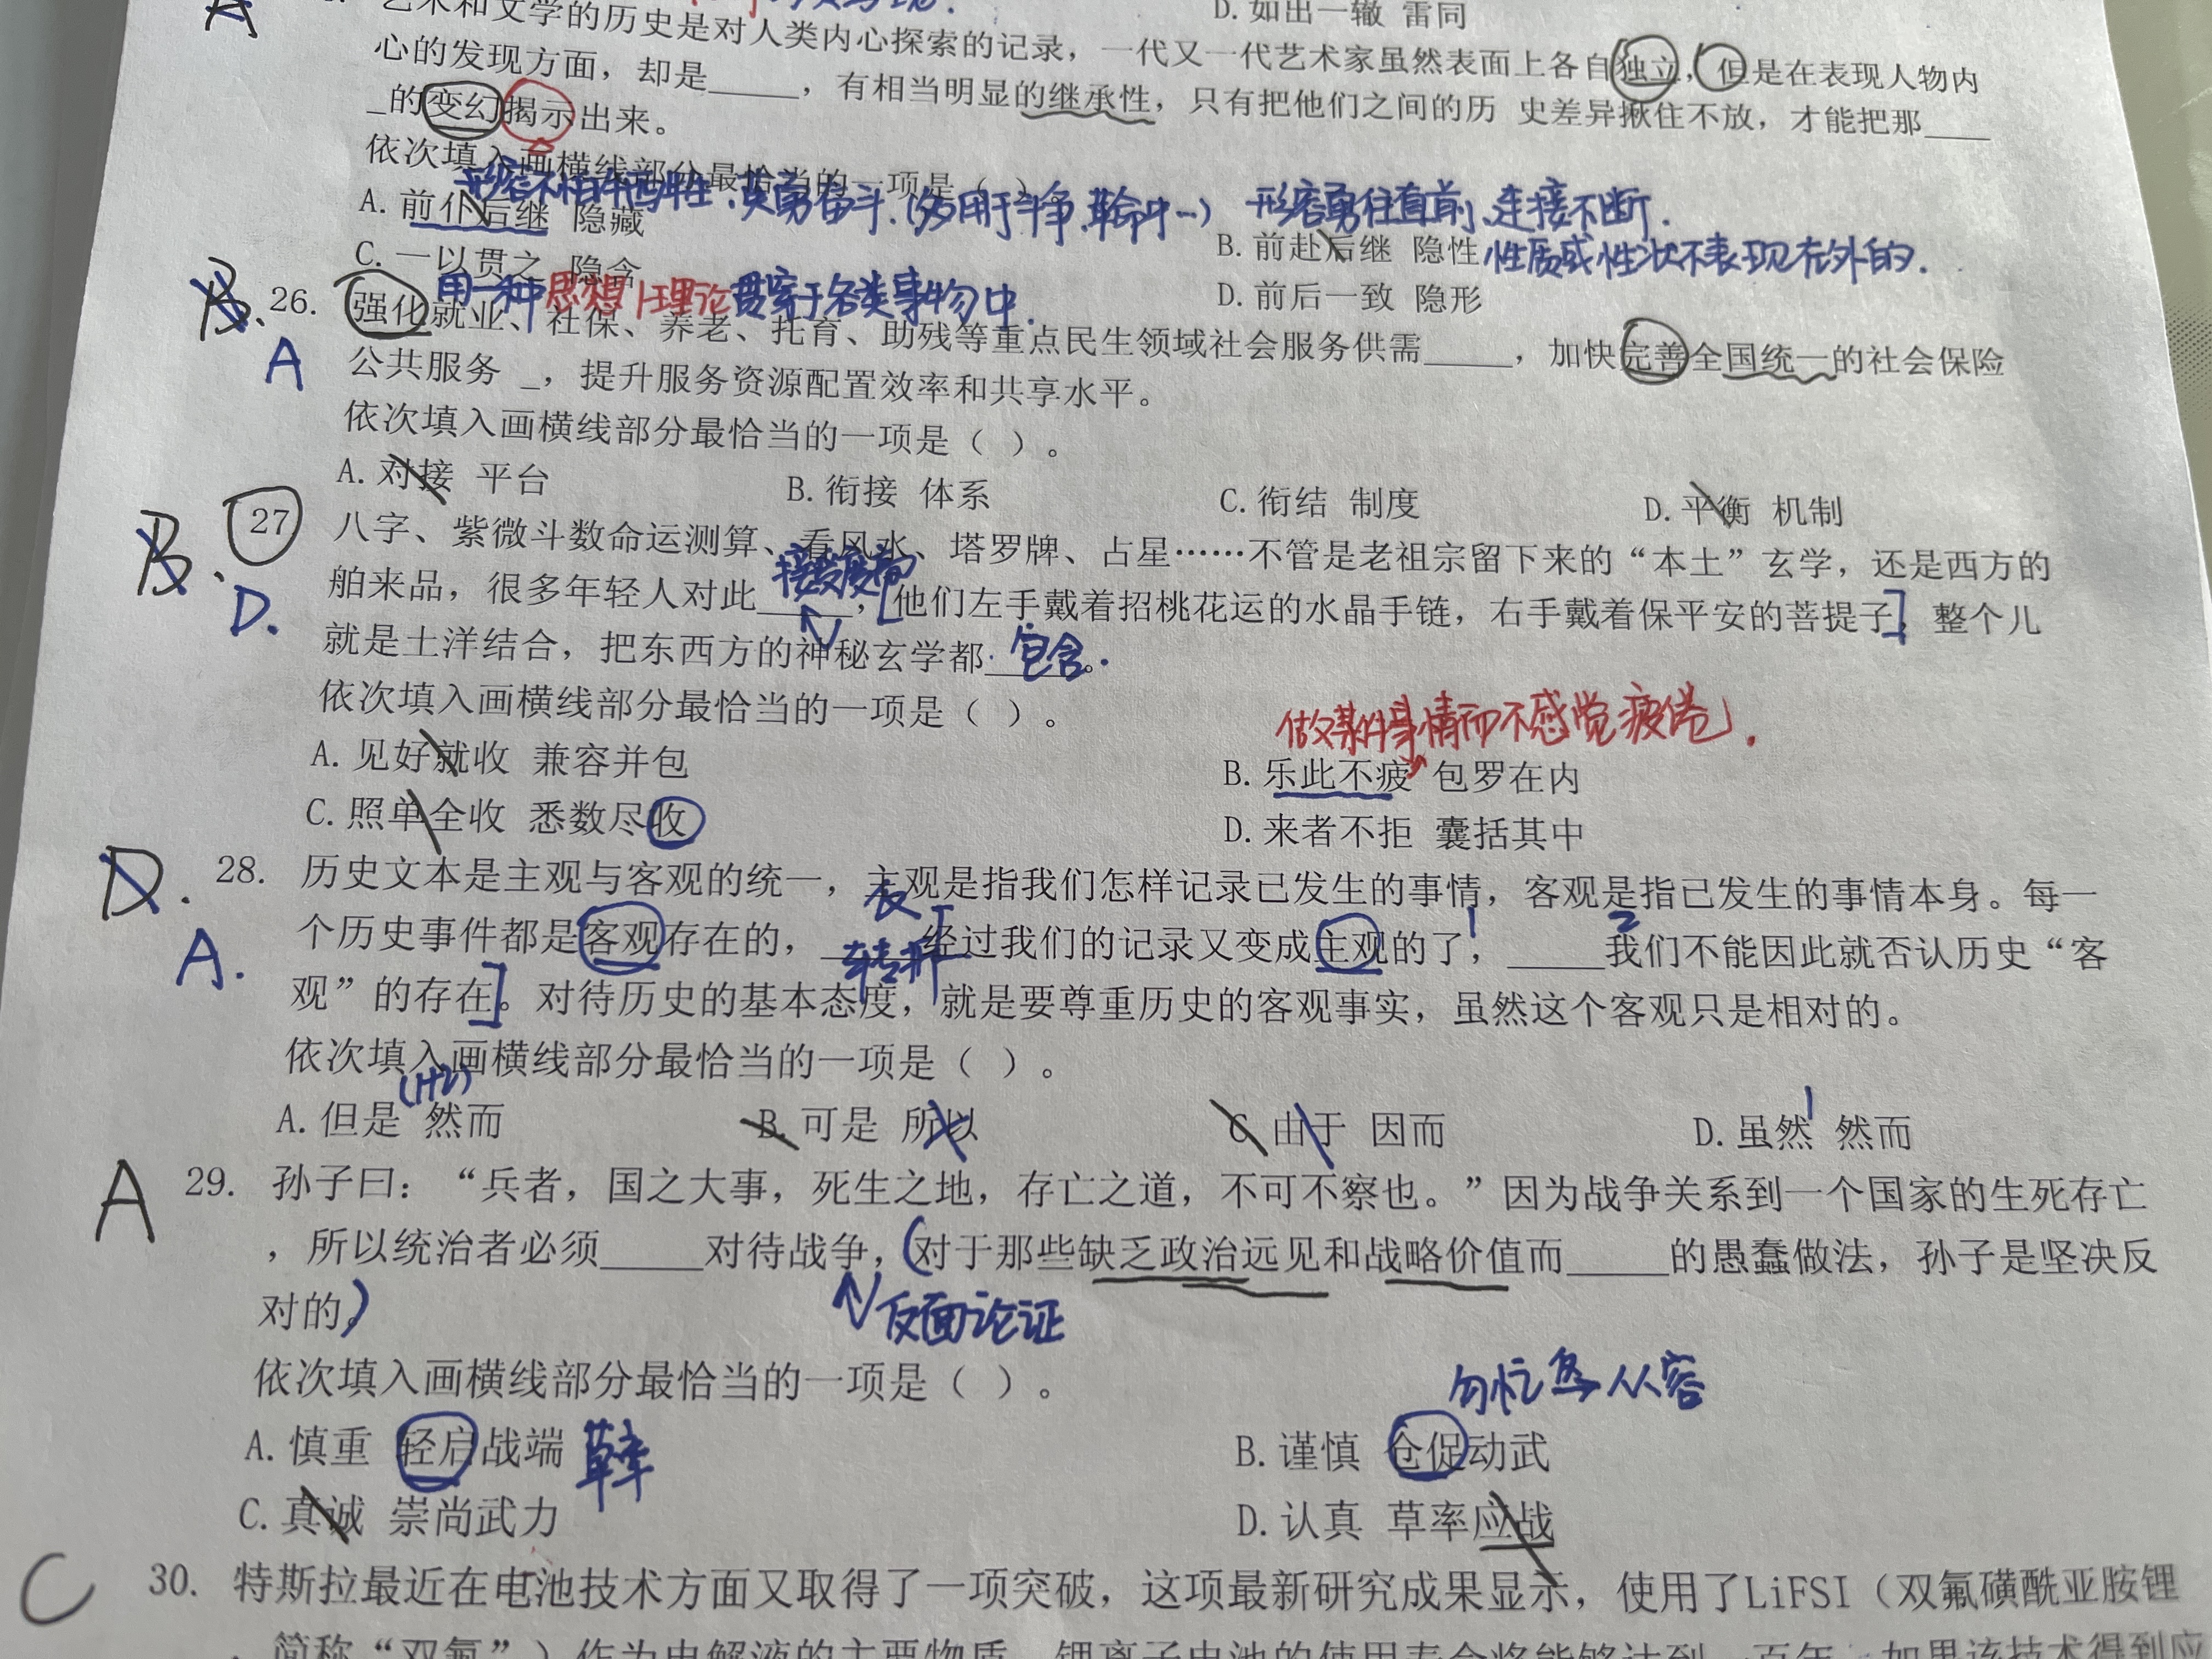 D. 如出一辙 雷同
A
艺术和文学的历史是对人类内心探索的记录，一代又一代艺术家虽然表面上各自独立，但是在表现人物内
心的发现方面，却是_____，有相当明显的继承性，只有把他们之间的历 史差异揪住不放，才能把那____
_的变幻揭示出来。
依次填入画横线部分最恰当的一项是（ ）。
形容不怕牺牲、英勇奋斗.(多用于斗争、革命中…)
形容勇往直前、连接不断.
A. 前仆后继 隐藏
B. 前赴后继 隐性
性质或性状不表现在外的.
C. 一以贯之 隐含
D. 前后一致 隐形
用一种思想|理论贯穿于各类事物中.
B.
A
26. 强化就业、社保、养老、托育、助残等重点民生领域社会服务供需_____，加快完善全国统一的社会保险
公共服务 _，提升服务资源配置效率和共享水平。
依次填入画横线部分最恰当的一项是（ ）。
A. 对接 平台
B. 衔接 体系
C. 衔结 制度
D. 平衡 机制
B.
D.
27 八字、紫微斗数命运测算、看风水、塔罗牌、占星……不管是老祖宗留下来的“本土”玄学，还是西方的
舶来品，很多年轻人对此_____，他们左手戴着招桃花运的水晶手链，右手戴着保平安的菩提子，整个儿
就是土洋结合，把东西方的神秘玄学都_____。
包含.
依次填入画横线部分最恰当的一项是（ ）。
做某件事情而不感觉疲倦.
A. 见好就收 兼容并包
B. 乐此不疲 包罗在内
C. 照单全收 悉数尽收
D. 来者不拒 囊括其中
D.
A.
28. 历史文本是主观与客观的统一，主观是指我们怎样记录已发生的事情，客观是指已发生的事情本身。每一
表
转折
1
2
个历史事件都是客观存在的，_____经过我们的记录又变成主观的了，_____我们不能因此就否认历史“客
观”的存在。对待历史的基本态度，就是要尊重历史的客观事实，虽然这个客观只是相对的。
依次填入画横线部分最恰当的一项是（ ）。
(1+2)
1
A. 但是 然而
B. 可是 所以
C 由于 因而
D. 虽然 然而
A
29. 孙子曰：“兵者，国之大事，死生之地，存亡之道，不可不察也。”因为战争关系到一个国家的生死存亡
，所以统治者必须_____对待战争，对于那些缺乏政治远见和战略价值而_____的愚蠢做法，孙子是坚决反
对的。
反面论证
依次填入画横线部分最恰当的一项是（ ）。
匆忙 不从容
A. 慎重 轻启战端
B. 谨慎 仓促动武
C. 真诚 崇尚武力
D. 认真 草率应战
C
30. 特斯拉最近在电池技术方面又取得了一项突破，这项最新研究成果显示，使用了LiFSI（双氟磺酰亚胺锂
，简称“双氟”）作为电解液的主要物质，锂离子电池的使用寿命将能够达到一百年。如果该技术得到应